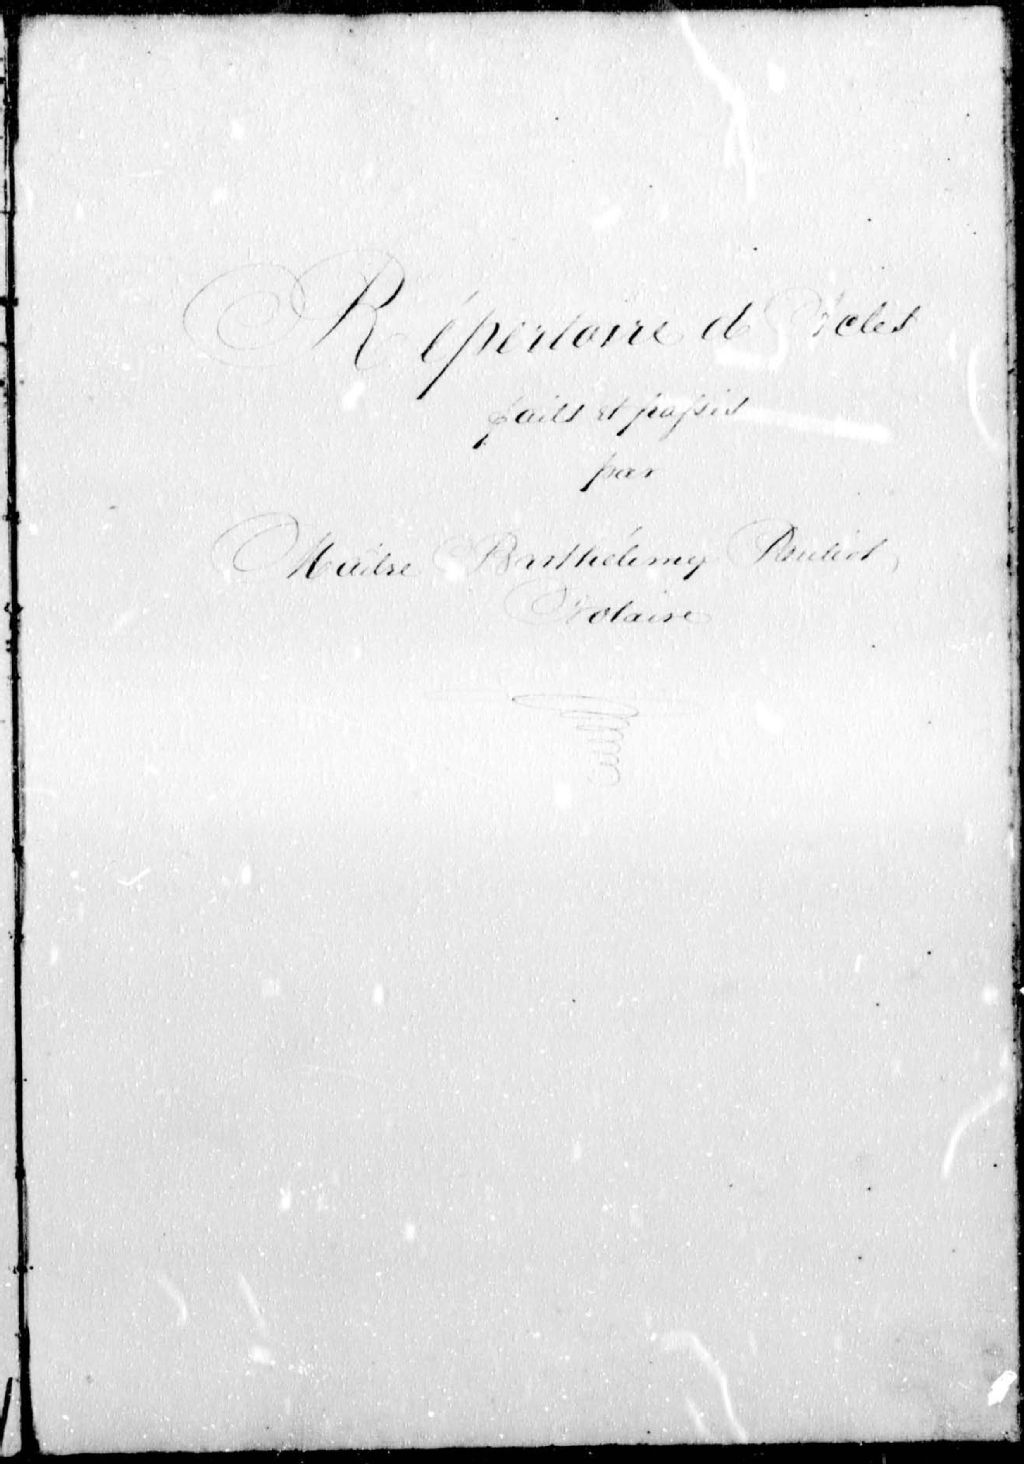 Répertoire d'Actes
faits et passés
par
Maître Barthélemy Pouliot,
Notaire